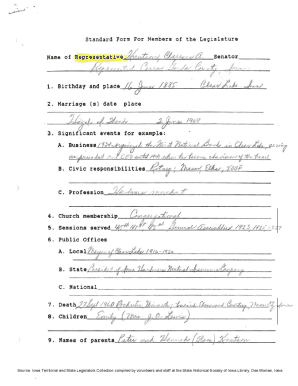 Standard Form For Members of the Legislature
Name of Representative Knutson, Clarence A Senator
Represented Cerro Gordo County, Iowa
1. Birthday and place 16 June 1885 Clear Lake Iowa
2. Marriage (s) date place
2 June 1909
3. Significant events for example:
A. Business 1934 organized the First National Bank in Clear Lake, serving
as president until
B. Civic responsibilities Rotary; Mason; Elks; IOOF
C. Profession Hardware merchant
4. Church membership Congregational
5. Sessions served General Assemblies 1933, 1935
6. Public Offices
A. Local Mayor of Clear Lake 1916-1920
B. State President of Iowa Hardware Mutual Insurance Company
C. National
7. Death 27 Sept 1960 Rochester Minnesota; buried Clear Lake Cemetery, Iowa
8. Children Emily (Mrs. J. O. Lewis)
9. Names of parents Peter and Hannah Knutson
Source: Iowa Territorial and State Legislators Collection compiled by volunteers and staff at the State Historical Society of Iowa Library, Des Moines, Iowa.